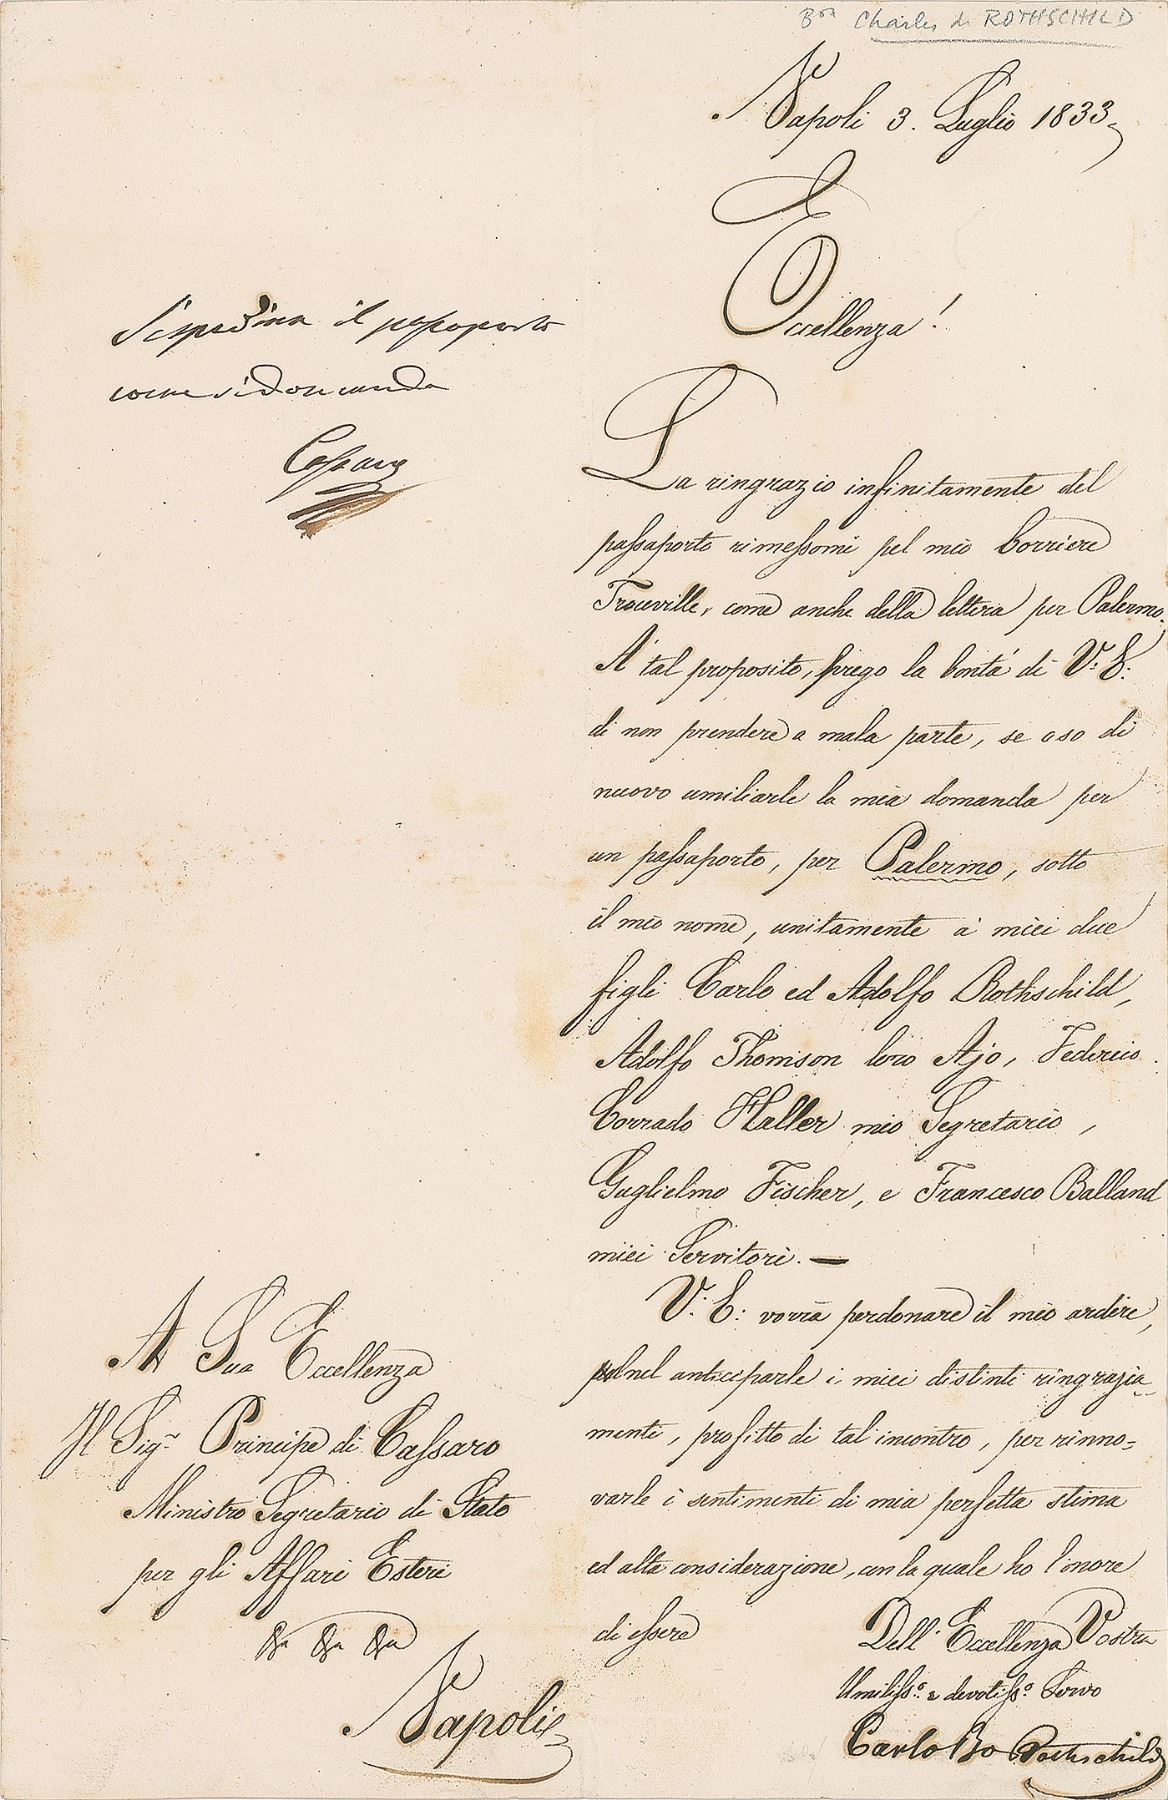 Bon Charles de ROTHSCHILD
Napoli 3. Luglio 1833
Eccellenza!
La ringrazio infinitamente del
passaporto rimessomi pel mio Corriere
Troueville, come anche della lettera per Palermo.
A' tal proposito, prego la bontà di V: E:
di non prendere a mala parte, se oso di
nuovo umiliarle la mia domanda per
un passaporto, per Palermo, sotto
il mio nome, unitamente a' miei due
figli Carlo ed Adolfo Rothschild,
Adolfo Thomson loro Ajo, Federico
Corrado Haller mio Segretario,
Guglielmo Fischer, e Francesco Balland
miei Servitori. —
V: E: vorrà perdonare il mio ardire,
nel anticiparle i miei distinti ringrazia
menti, profitto di tal incontro, per rinno=
varle i sentimenti di mia perfetta stima
ed alta considerazione, con la quale ho l'onore
di essere
Dell' Eccellenza Vostra
Umiliss.º e devotiss.º Servo
Carlo Bo Rothschild
Si spedisca il passaporto
come si domanda
Cassaro
A Sua Eccellenza
Il Sigr Principe di Cassaro
Ministro Segretario di Stato
per gli Affari Esteri
&a &a &a
Napoli